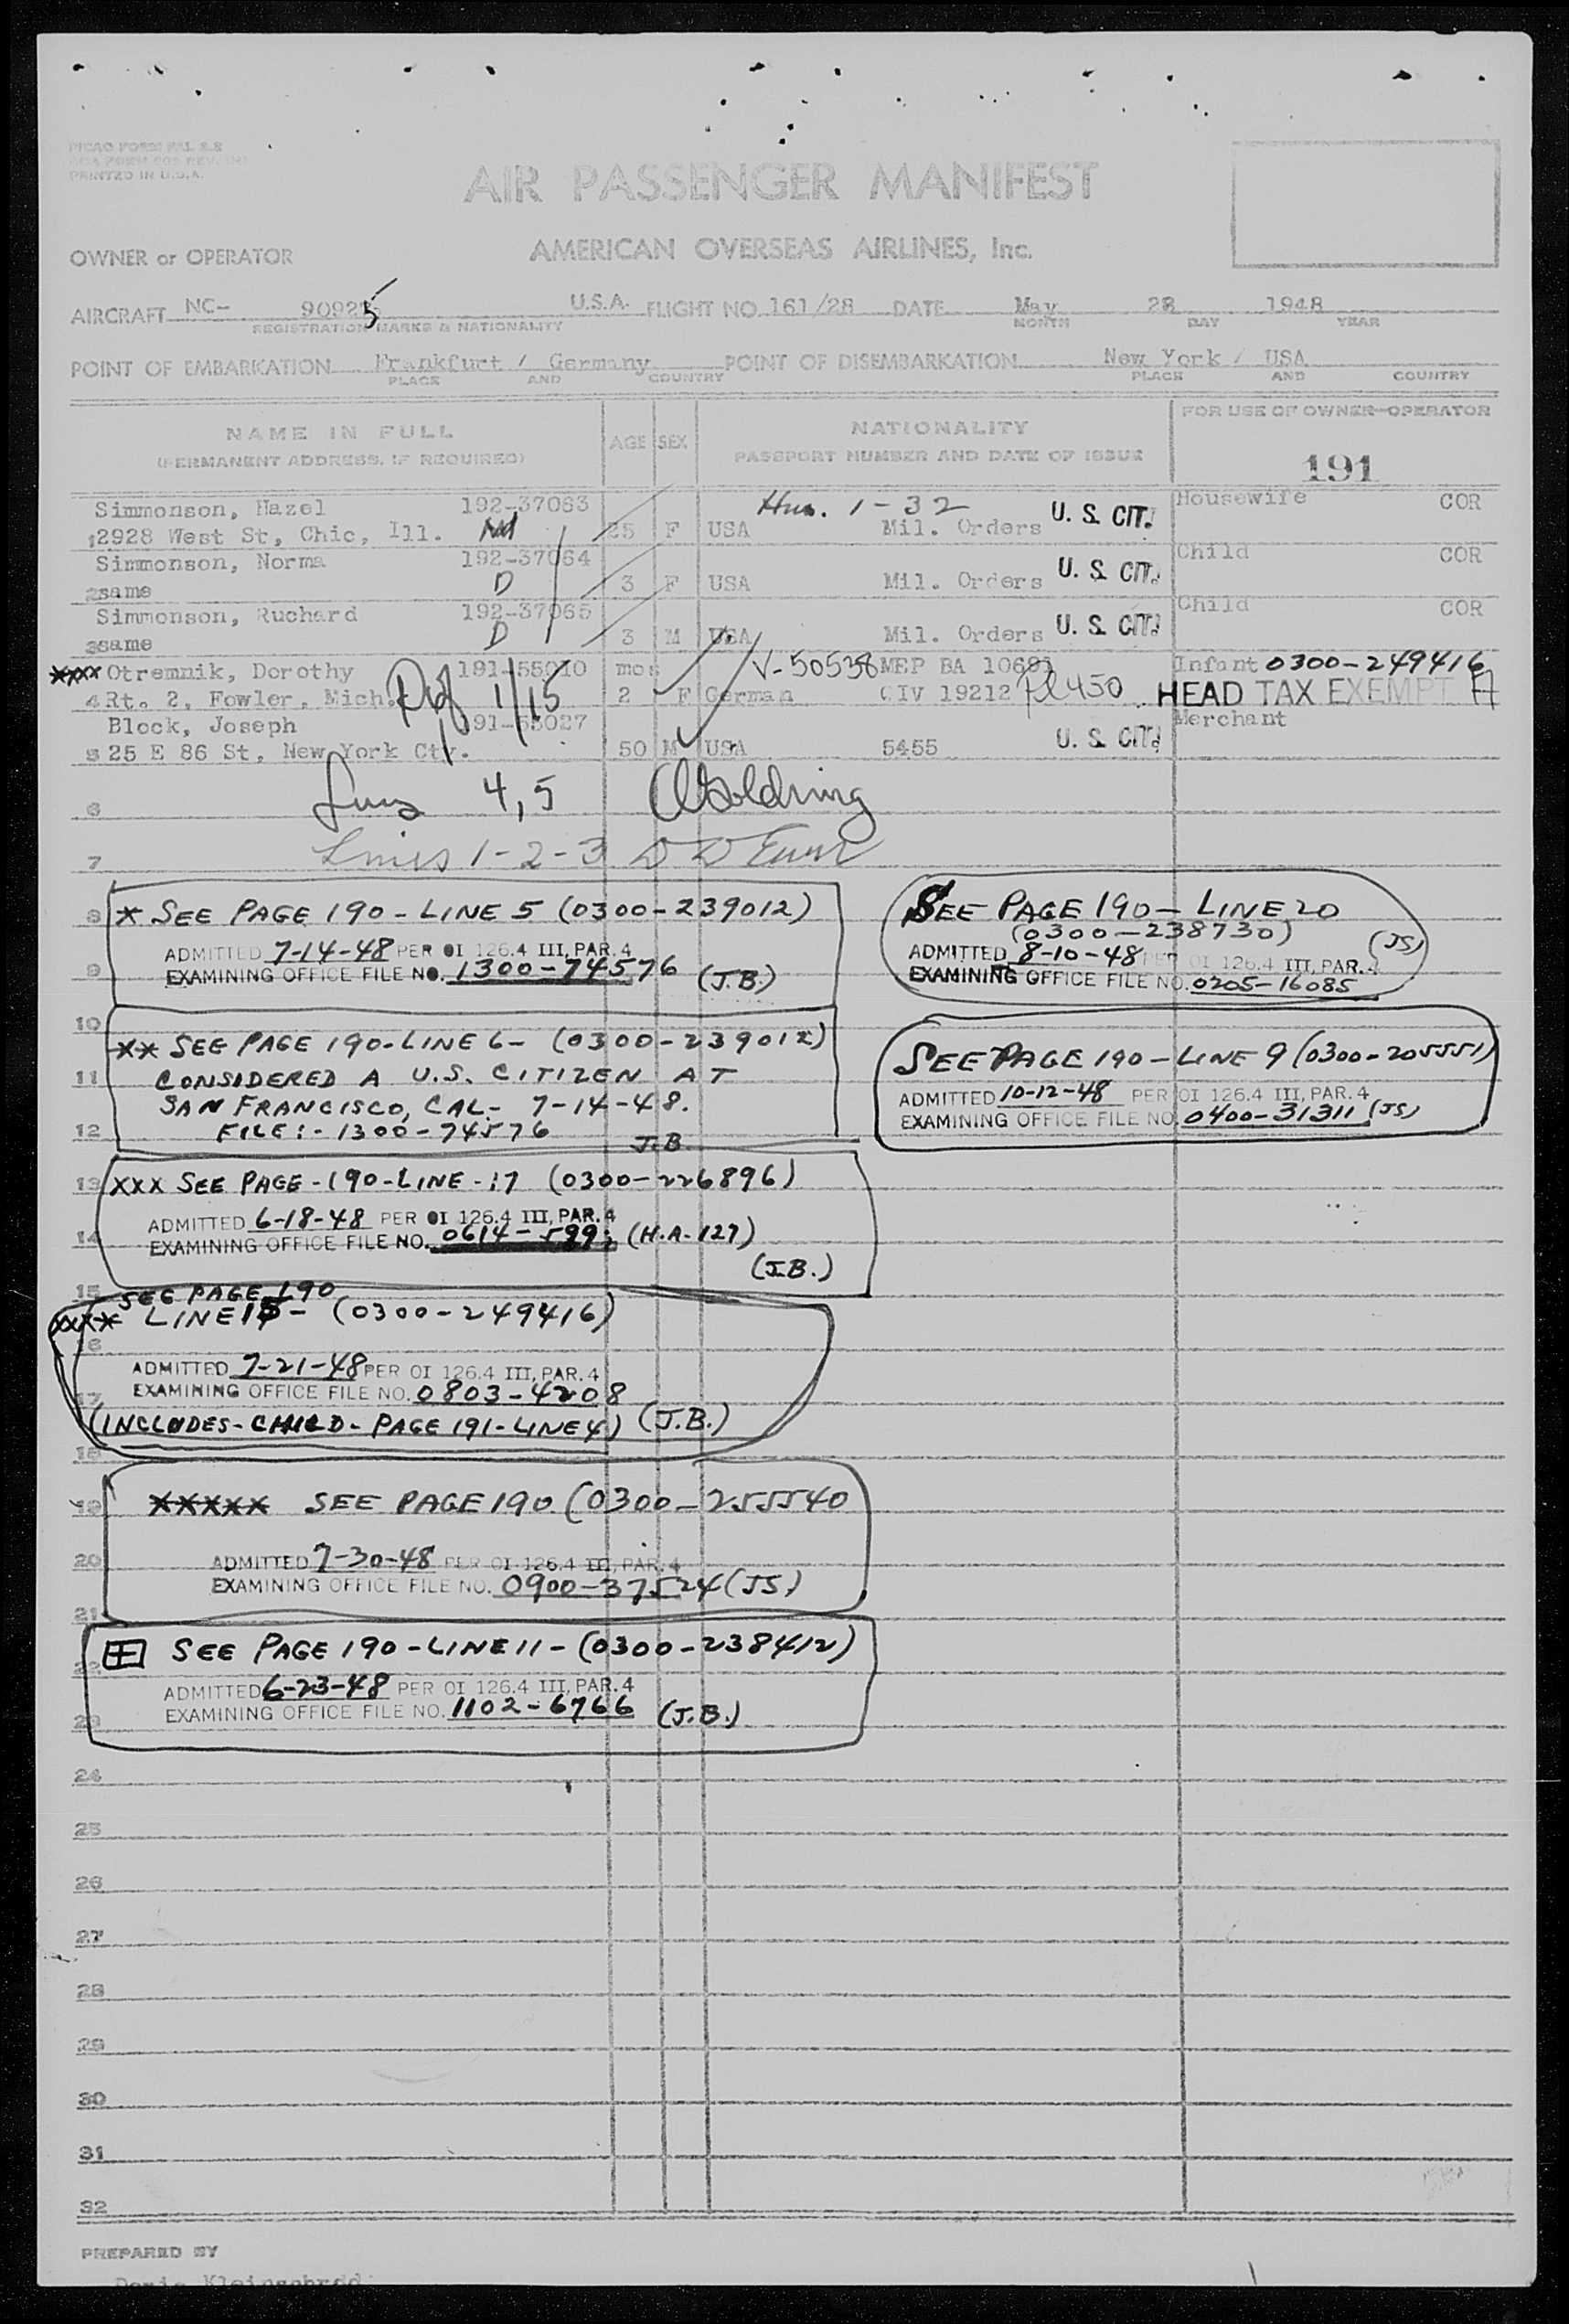 PICAO FORM FAL 2.2
PRINTED IN U.S.A.
AIR PASSENGER MANIFEST
OWNER or OPERATOR AMERICAN OVERSEAS AIRLINES, Inc.
AIRCRAFT NC- 90925 U.S.A. FLIGHT NO. 161/28 DATE May 28 1948
REGISTRATION MARKS & NATIONALITY MONTH DAY YEAR
POINT OF EMBARKATION Frankfurt / Germany POINT OF DISEMBARKATION New York / USA
PLACE AND COUNTRY PLACE AND COUNTRY
NAME IN FULL AGE SEX NATIONALITY FOR USE OF OWNER-OPERATOR
(PERMANENT ADDRESS, IF REQUIRED) PASSPORT NUMBER AND DATE OF ISSUE
191
Simmonson, Hazel 192-37063 1-32 Housewife COR
1 2928 West St, Chic, Ill. 25 F USA Mil. Orders U. S. CIT.
Simmonson, Norma 192-37064 Child COR
2 same D 3 F USA Mil. Orders U. S. CIT.
Simmonson, Ruchard 192-37065 Child COR
3 same D 3 M USA Mil. Orders U. S. CIT.
xxxx Otremnik, Dorothy 191-55010 mos V-50538 MEP BA 10681 Infant 0300-249416
4 Rt. 2, Fowler, Mich. 1/15 2 F German CIV 19212 HEAD TAX EXEMPT
Block, Joseph 191-55027 Merchant
5 25 E 86 St, New York Cty. 50 M USA 5455 U. S. CIT.
6 4, 5
7 Lines 1-2-3
8 * SEE PAGE 190 - LINE 5 (0300-239012)
ADMITTED 7-14-48 PER OI 126.4 III, PAR. 4
9 EXAMINING OFFICE FILE NO. 1300-74576 (J.B.)
SEE PAGE 190 - LINE 20
(0300-238730) (JS)
ADMITTED 8-10-48 PER OI 126.4 III, PAR. 4
EXAMINING OFFICE FILE NO. 0205-16085
10 ** SEE PAGE 190-LINE 6- (0300-239012)
11 CONSIDERED A U.S. CITIZEN AT
SAN FRANCISCO, CAL- 7-14-48.
12 FILE:- 1300-74576 J.B.
SEE PAGE 190 - LINE 9 (0300-205551)
ADMITTED 10-12-48 PER OI 126.4 III, PAR. 4
EXAMINING OFFICE FILE NO. 0400-31311 (JS)
13 xxx SEE PAGE-190-LINE-17 (0300-226896)
ADMITTED 6-18-48 PER OI 126.4 III, PAR. 4
14 EXAMINING OFFICE FILE NO. 0614-599; (H.A.127)
(J.B.)
15 SEE PAGE 190
xxxx LINE 15- (0300-249416)
16
ADMITTED 7-21-48 PER OI 126.4 III, PAR. 4
17 EXAMINING OFFICE FILE NO. 0803-4208
(INCLUDES-CHILD-PAGE 191-LINE 4) (J.B.)
18
19 xxxxx SEE PAGE 190 (0300-255540
20 ADMITTED 7-30-48 PER OI 126.4 III, PAR. 4
EXAMINING OFFICE FILE NO. 0900-37524 (JS)
21
22 SEE PAGE 190-LINE 11-(0300-238412)
ADMITTED 6-23-48 PER OI 126.4 III, PAR. 4
23 EXAMINING OFFICE FILE NO. 1102-6766 (J.B.)
24
25
26
27
28
29
30
31
32
PREPARED BY